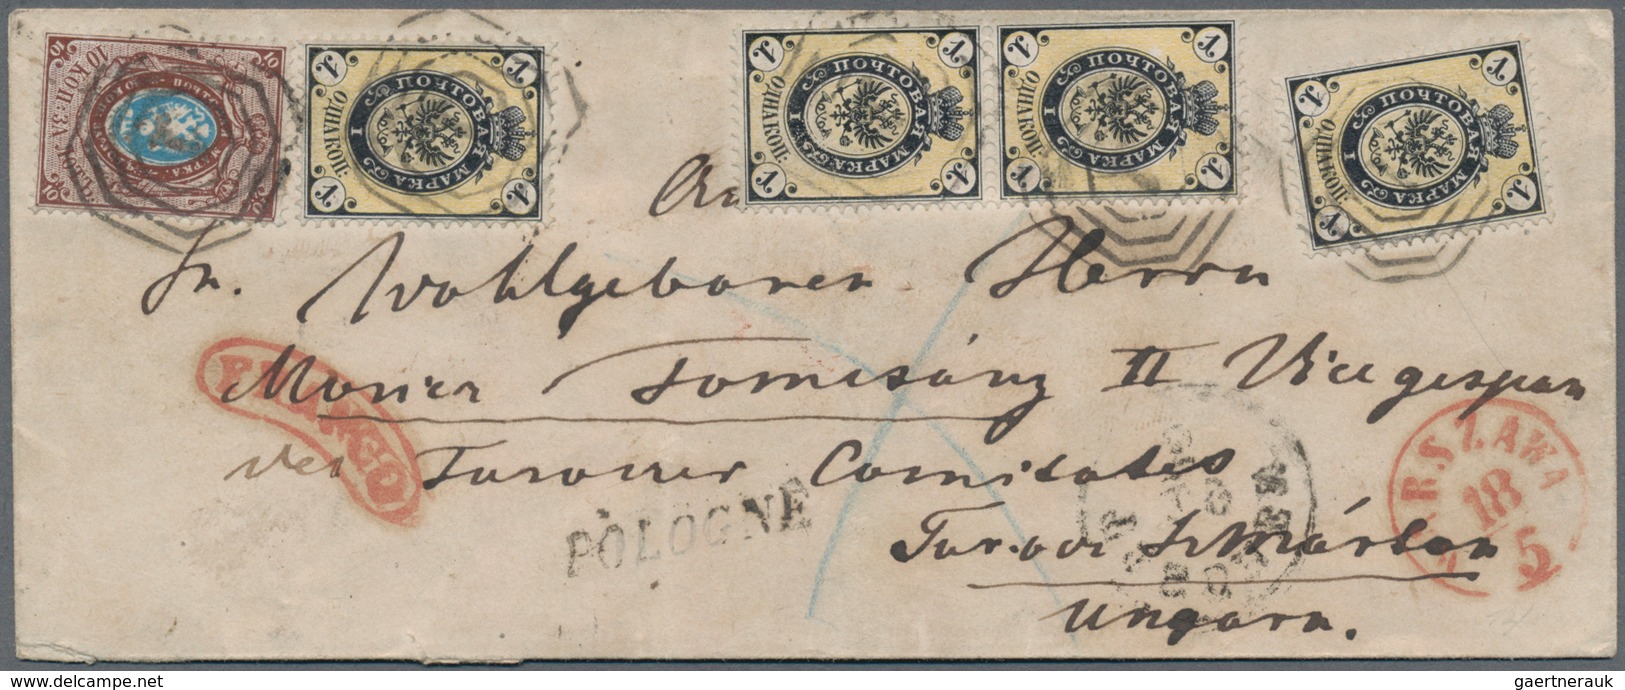 10 КОП. ЗА
ОДНА КОП.
ПОЧТОВАЯ МАРКА
1
ОДНА КОП.
ПОЧТОВАЯ МАРКА
1
ОДНА КОП.
ПОЧТОВАЯ МАРКА
1
ОДНА КОП.
ПОЧТОВАЯ МАРКА
1
An
Sr. Wohlgeboren Herrn
Moriz Tomcsány II Vicegespan
des Turoczer Comitates
Turócz Szt Márton
Ungarn.
FRANCO
POLOGNE
WARSZAWA
18
5
www.delcampe.net
gaertnerauk